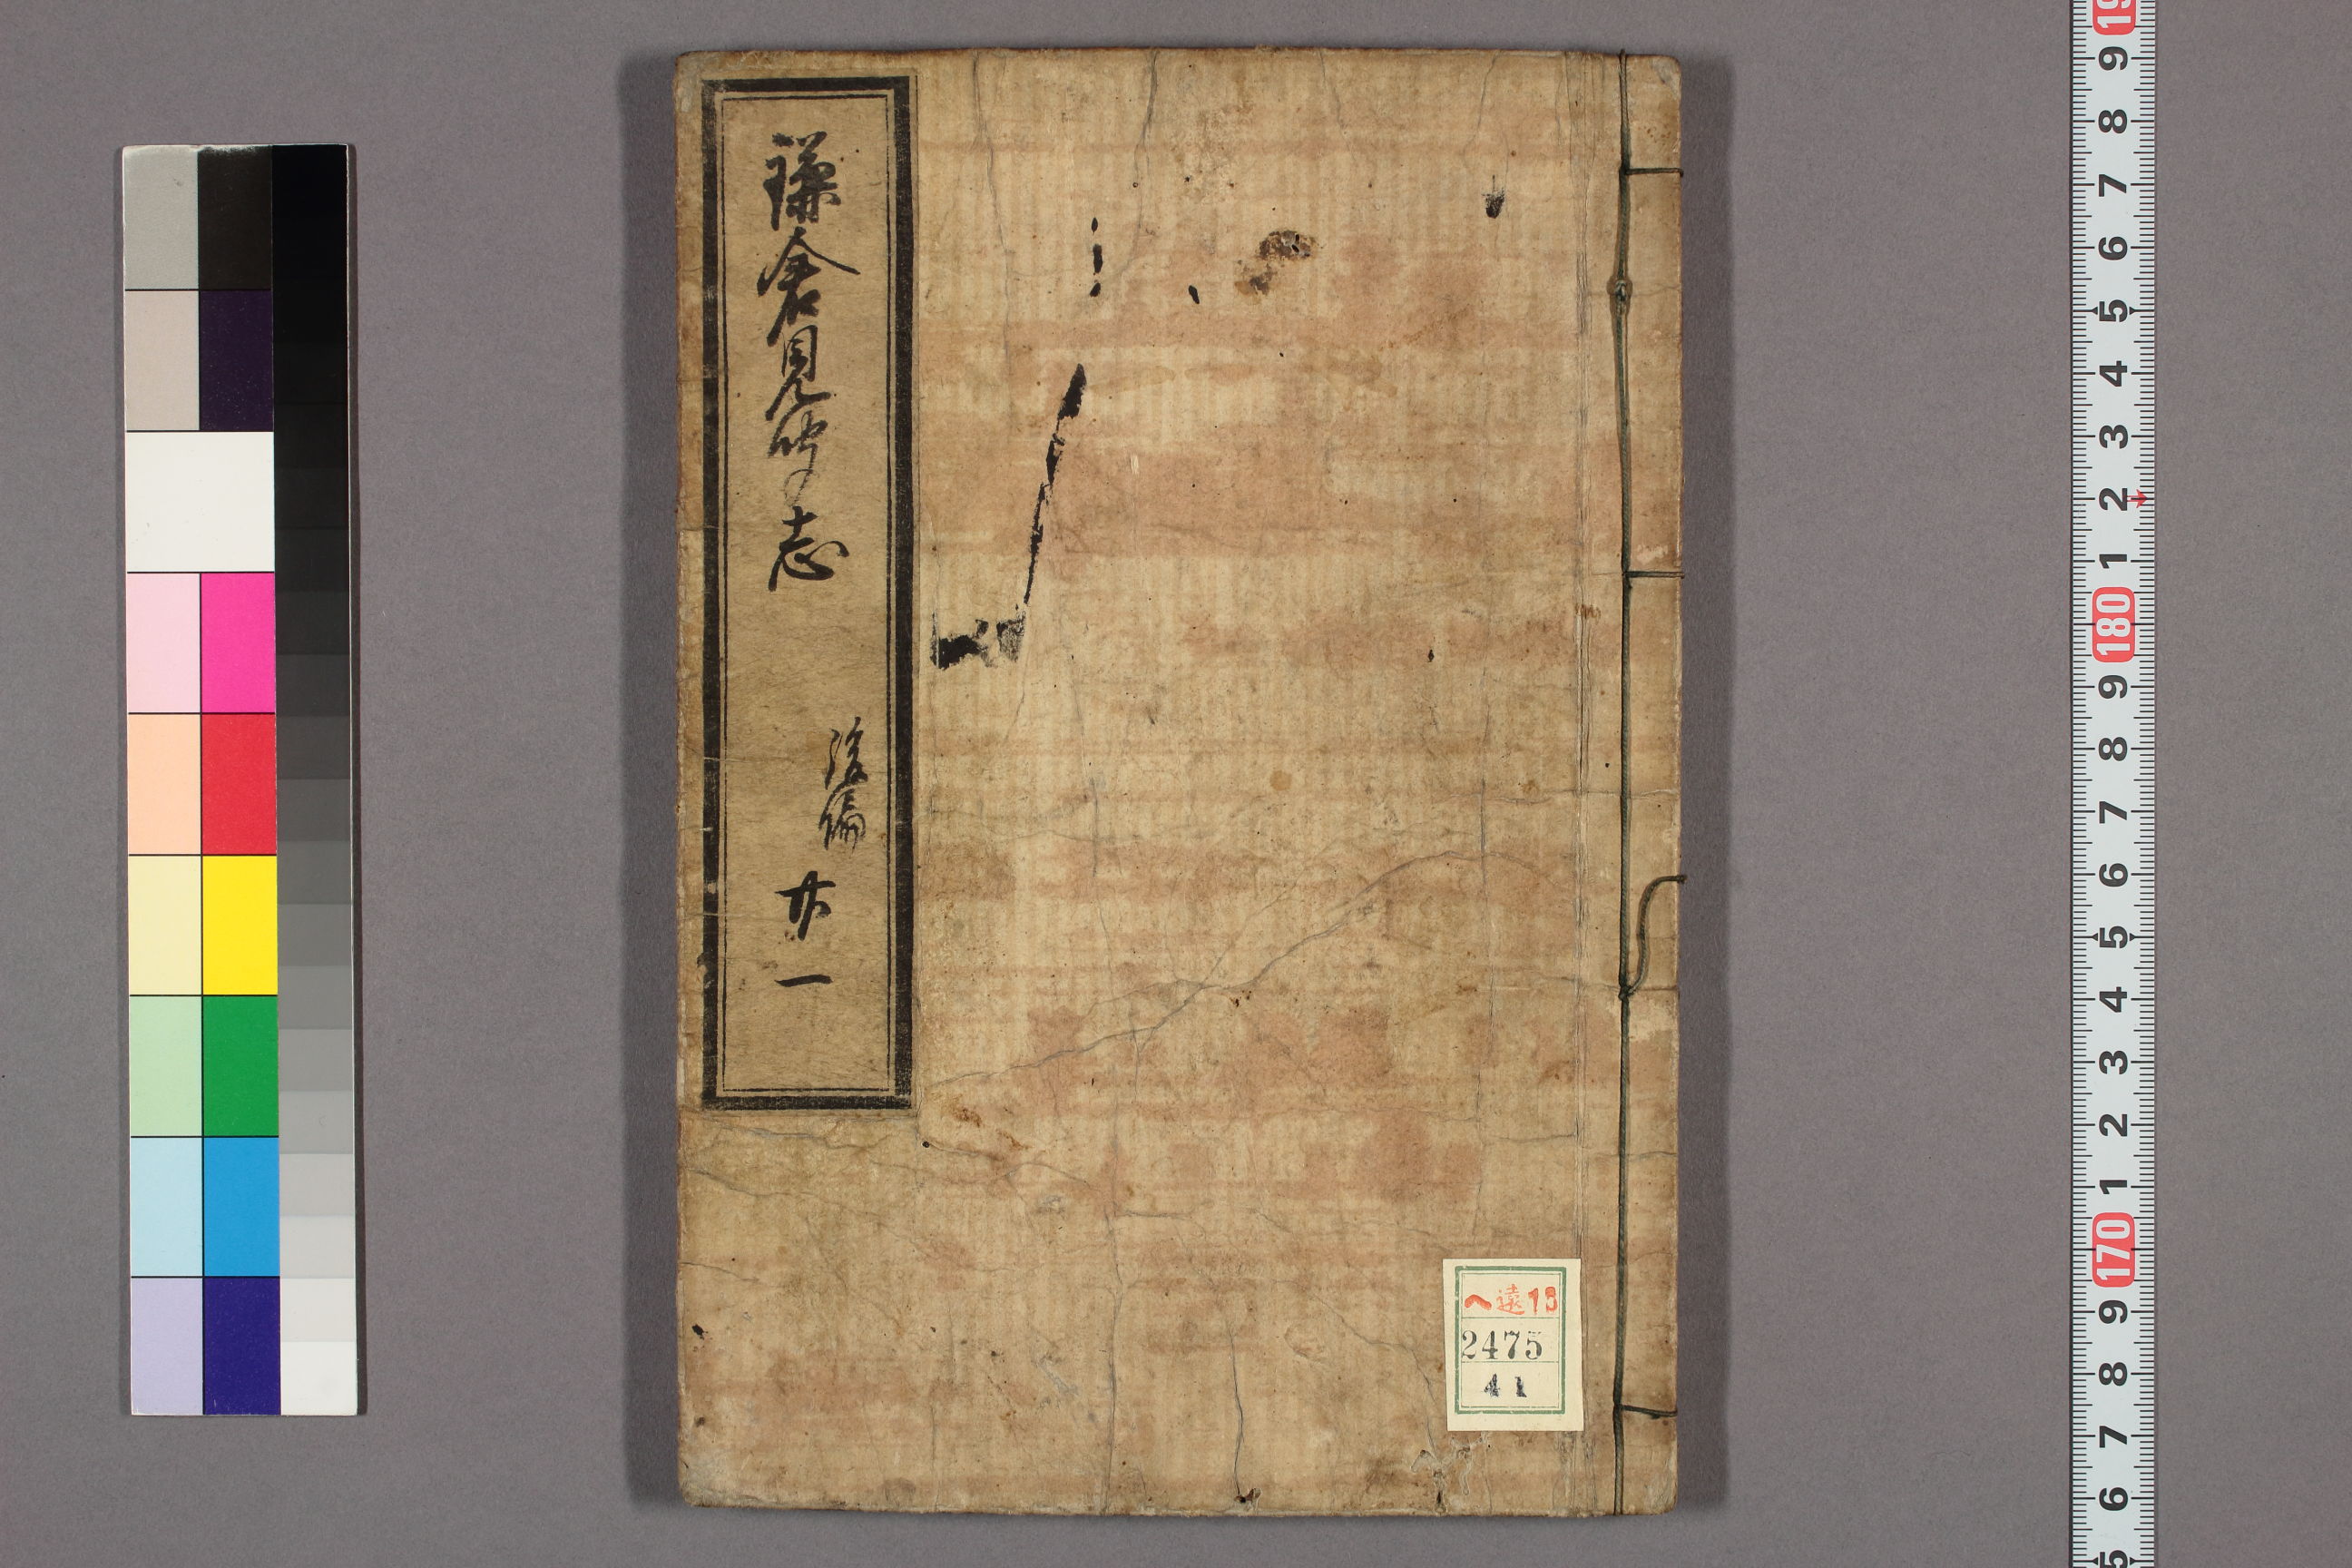 鎌倉見聞志
後編
廿一
ヘ遠13
2475
41
9
8
7
6
5
4
3
2
1
180
9
8
7
6
5
4
3
2
1
170
9
8
7
6
5